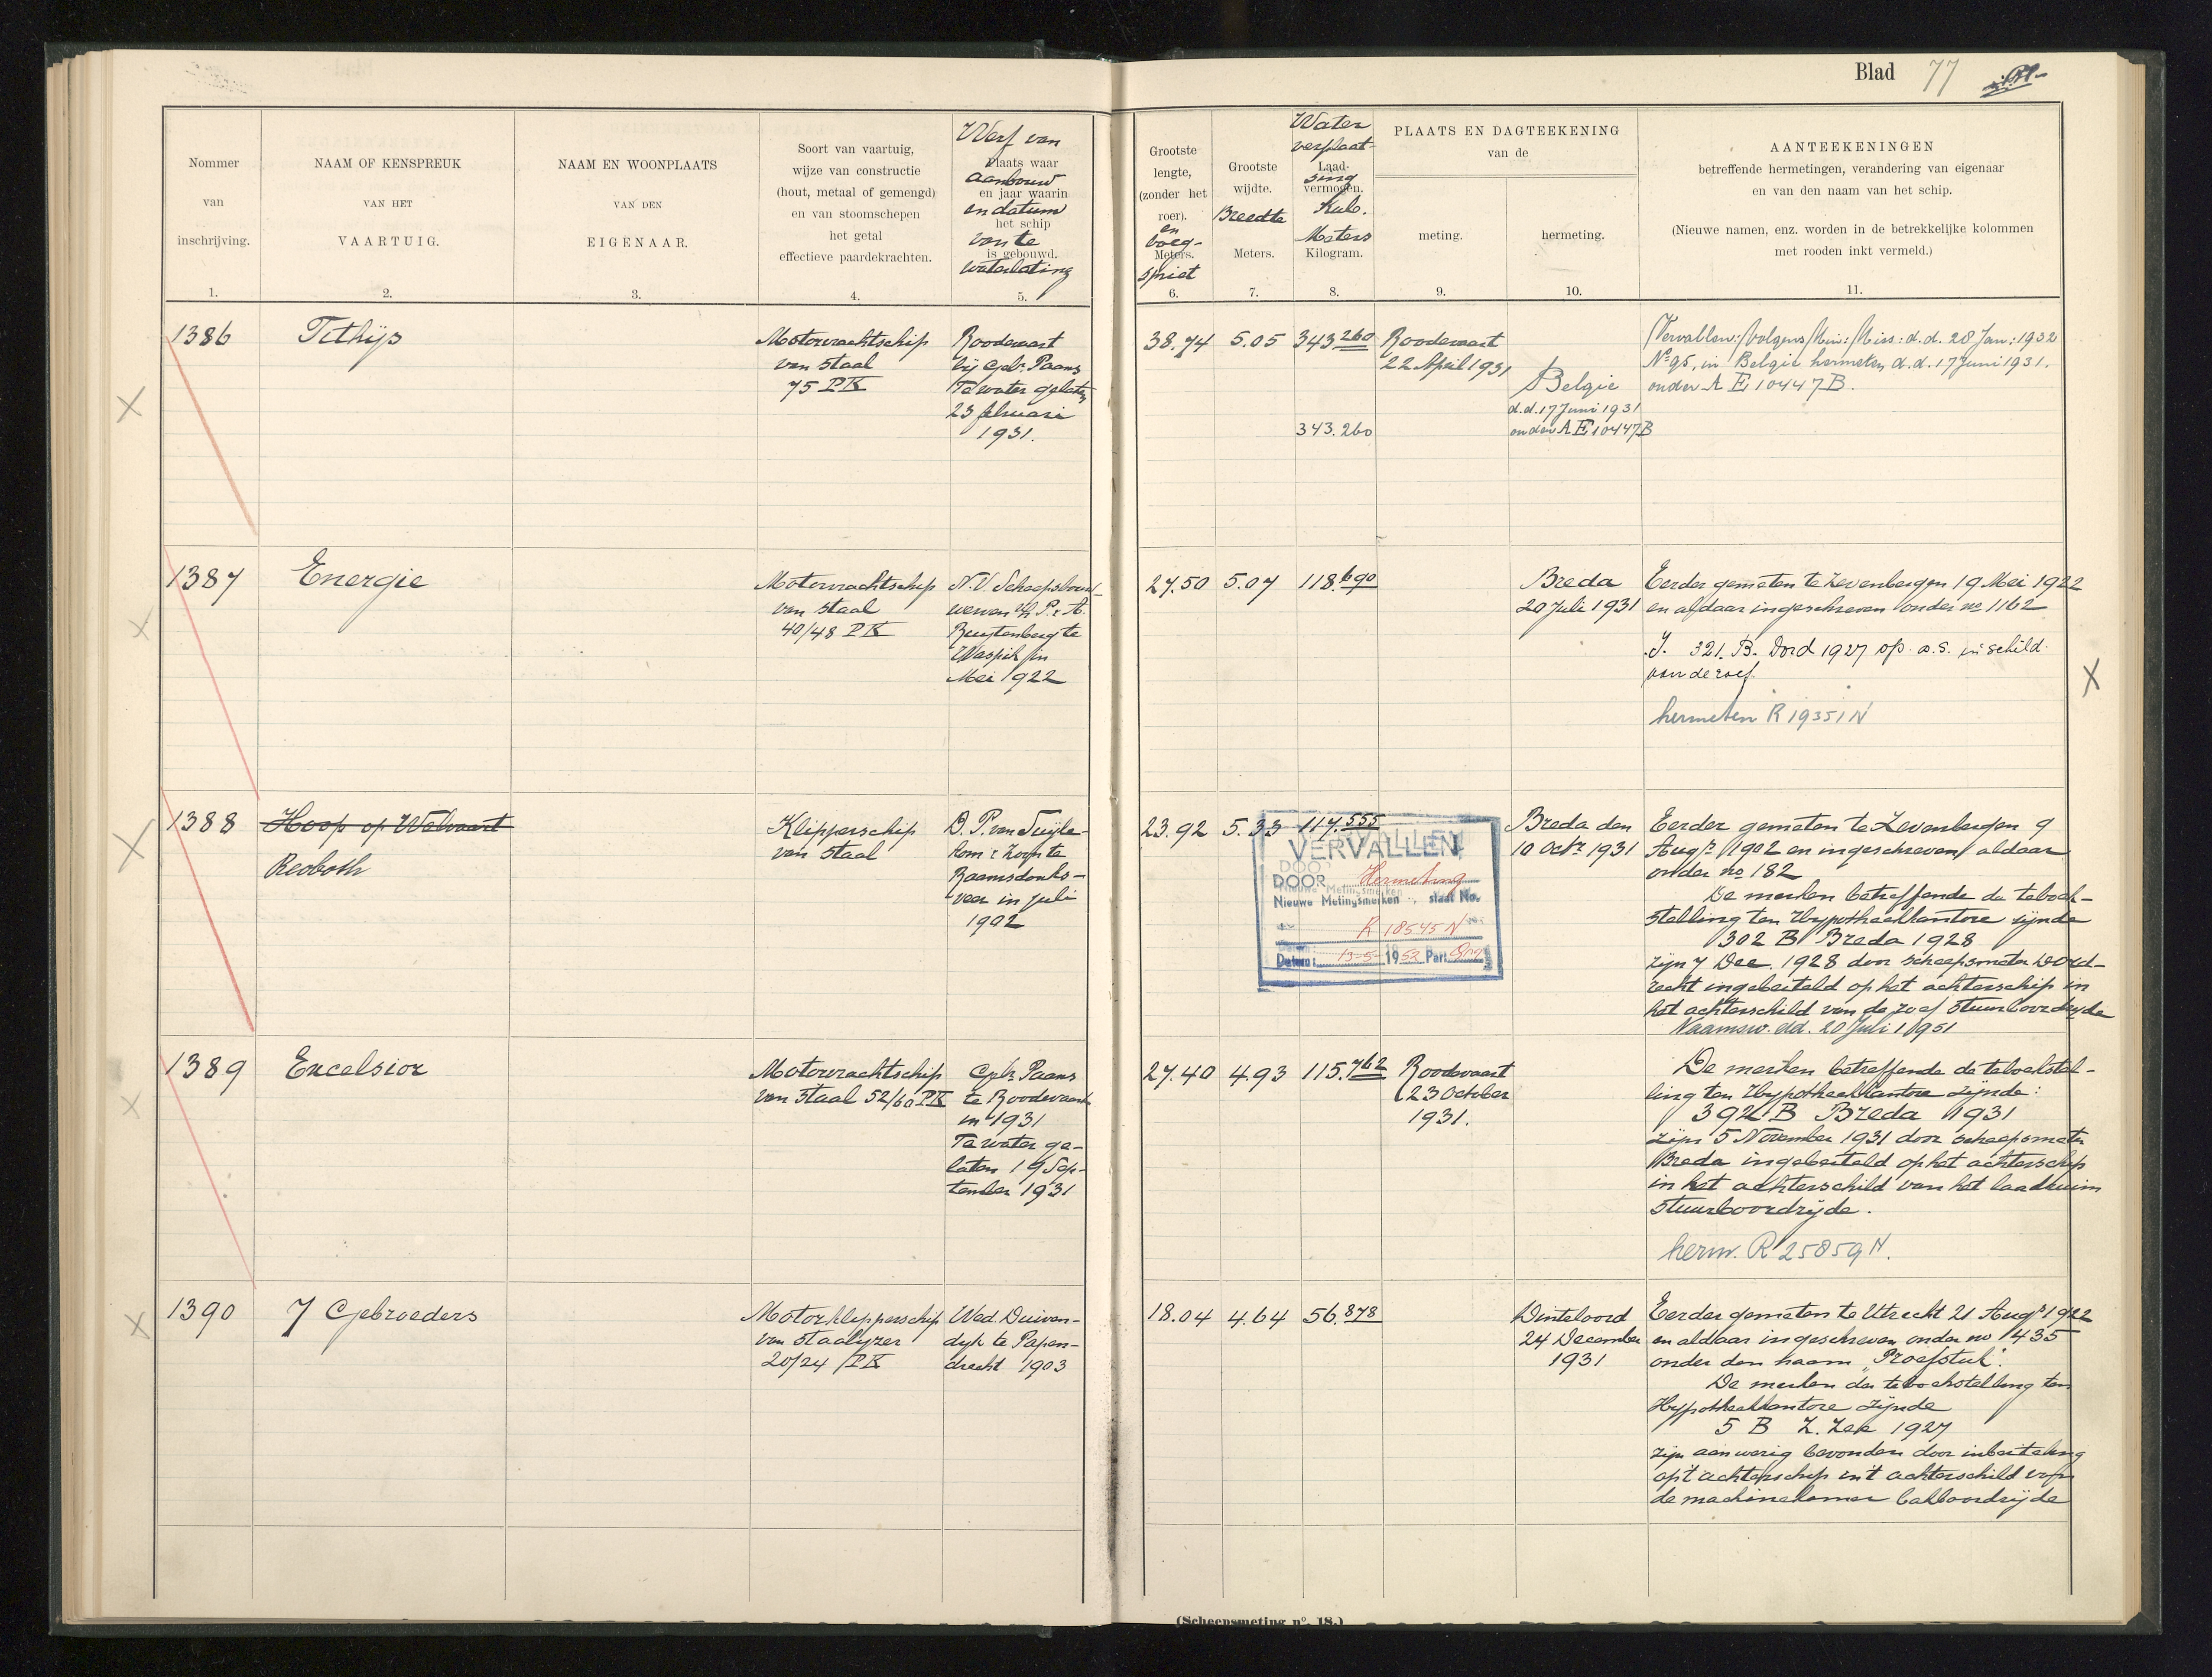 Blad 77
Nommer
van
inschrijving.
1.
NAAM OF KENSPREUK
VAN HET
VAARTUIG.
2.
NAAM EN WOONPLAATS
VAN DEN
EIGENAAR.
3.
Soort van vaartuig,
wijze van constructie
(hout, metaal of gemengd)
en van stoomschepen
het getal
effectieve paardekrachten.
4.
Werf van
Plaats waar
aanbouw
en jaar waarin
en datum
het schip
van te
is gebouwd.
waterlating
5.
Grootste
lengte,
(zonder het
roer).
en
boeg-
Meters.
spriet
6.
Grootste
wijdte.
Breedte
Meters.
7.
Water
verplaat-
Laad-
sing
vermogen.
Kub.
Meters
Kilogram.
8.
PLAATS EN DAGTEEKENING
van de
meting.
9.
hermeting.
10.
AANTEEKENINGEN
betreffende hermetingen, verandering van eigenaar
en van den naam van het schip.
(Nieuwe namen, enz. worden in de betrekkelijke kolommen
met rooden inkt vermeld.)
11.
1386
Tethys
Motorvrachtschip
van staal
75 PK
Roodevaart
bij Gebr. Paans
Te water gelaten
23 februari
1931.
38.74
5.05
343.260
343.260
Roodevaart
22 April 1931
Belgie
d.d. 17 Juni 1931
onder AE 10447B
Vervallen: volgens Min: Miss: d.d. 28 Jan: 1932
No 95, in Belgie hermeten d.d. 17 Juni 1931.
onder AE 10447B.
1387
Energie
Motorvrachtschip
van staal
40/48 PK
N.V. Scheepsbouw-
werven v/h P. & A.
Ruytenberg te
Waspik in
Mei 1922
27.50
5.07
118.690
Breda
20 Juli 1931
Eerder gemeten te Zevenbergen 19 Mei 1922
en aldaar ingeschreven onder no 1162
J. 321. B. Dord 1927 op a.s. in schild
van de roef.
hermeten R 19351 N
1388
Hoop op Welvaart
Reoboth
Klipperschip
van staal
D. P. van Suijle-
kom & Zoon te
Raamsdonks-
veer in Juli
1902
23.92
5.33
117.555
VERVALLEN
DOOR Hermeting
Nieuwe Metingsmerken staat No.
R 18545 N
Datum: 13-5-1952 Par:
Breda den
10 Octr 1931
Eerder gemeten te Zevenbergen 9
Augs 1902 en ingeschreven aldaar
onder no 182
De merken betreffende de teboek-
stelling ten Hypotheekkantore zijnde
302 B Breda 1928
zijn 7 Dec. 1928 door scheepsmeter Dord-
recht ingebeiteld op het achterschip in
het achterschild van de roef stuurboordzijde
Naamsw. dd. 20 Juli 1951
1389
Excelsior
Motorvrachtschip
van staal 52/60 PK
Gebr. Paans
te Roodevaart
in 1931
Te water ge-
laten 19 Sep-
tember 1931
27.40
4.93
115.762
Roodevaart
23 October
1931.
De merken betreffende de teboekstel-
ling ten Hypotheekkantore zijnde:
392 B Breda 1931
zijn 5 November 1931 door scheepsmeter
Breda ingebeiteld op het achterschip
in het achterschild van het laadruim
stuurboordzijde.
herm. R 25859 N.
1390
7 Gebroeders
Motorklipperschip
van staalijzer
20/24 PK
Wed. Duiven-
dyk te Papen-
drecht 1903
18.04
4.64
56.878
Dinteloord
24 December
1931
Eerder gemeten te Utrecht 21 Augs 1922
en aldaar ingeschreven onder no 1435
onder den naam "Proefstuk".
De merken der teboekstelling ten
Hypotheekkantore zijnde
5 B Z. Zee 1927
zijn aanwezig bevonden door inbeiteling
op 't achterschip in 't achterschild van
de machinekamer bakboordzijde
(Scheepsmeting no. 18.)